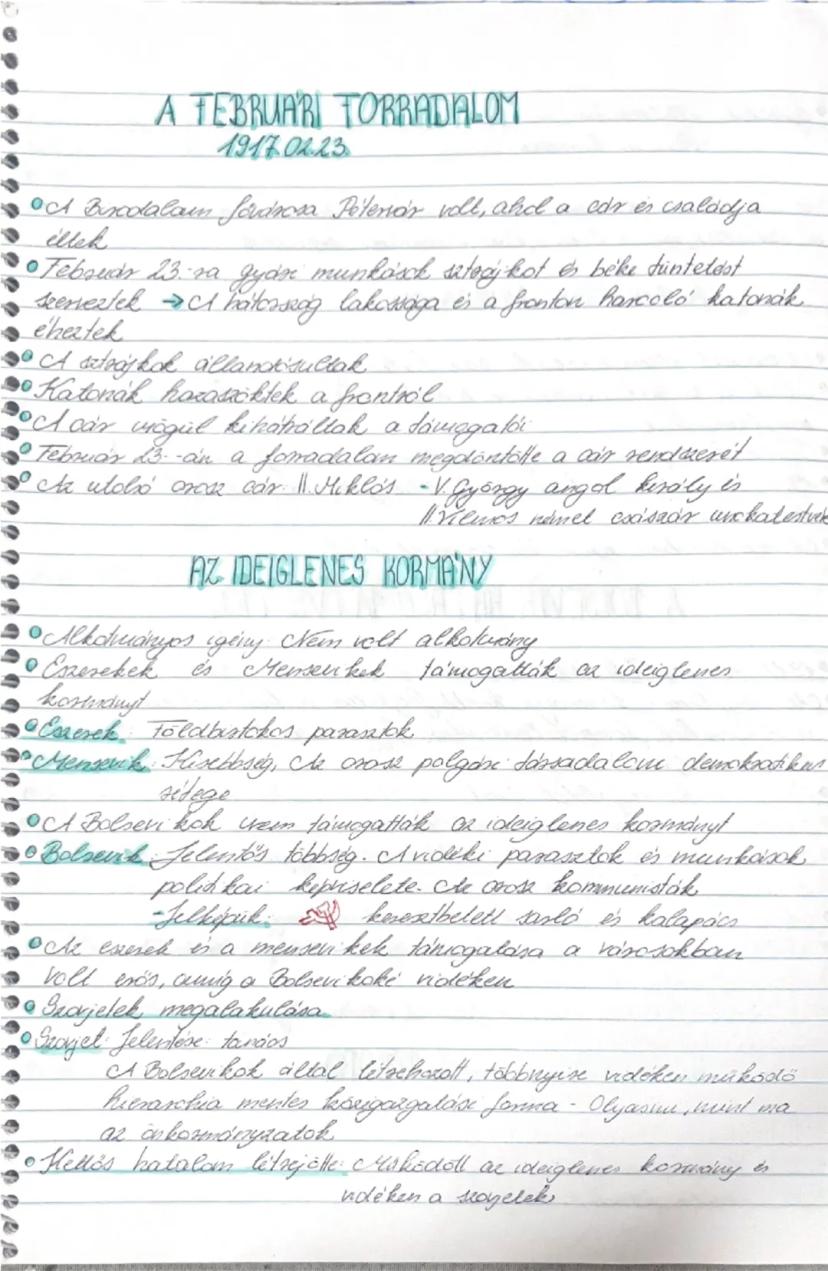 A FEBRUÁRI FORRADALOM
1917.02.23.
A Birodalom fővárosa Pétervár volt, ahol a cár és családja
éltek
Február 23-ra gyári munkások sztrájkot és béke tüntetést
szerveztek → A hátország lakossága és a fronton harcoló katonák
éheztek
A sztrájkok állandósultak
Katonák hazaszöktek a frontról
A cár mögül kihátráltak a támogatói
Február 23.-án a forradalom megdöntötte a cár rendszerét
Az utolsó orosz cár: II. Miklós - V. György angol király és
II. Vilmos német császár unokatestvér
AZ IDEIGLENES KORMÁNY
Alkotmányos igény: Nem volt alkotmány
Eszerek és Mensevikek támogatták az ideiglenes
kormányt
Eszerek: Földbirtokos parasztok
Mensevik: Kisebbség, Az orosz polgári társadalom demokratikus
rétege
A Bolsevikok nem támogatták az ideiglenes kormányt
Bolsevik: Jelentős többség. A vidéki parasztok és munkások
politikai képviselete. Az orosz kommunisták
-Jelképük: keresztbetett sarló és kalapács
Az eszerek és a mensevikek támogatása a városokban
volt erős, amíg a Bolsevikoké vidéken
Szovjetek megalakulása
Szovjet: Jelentése: tanács
A Bolsevikok által létrehozott, többnyire vidéken működő
hierarchia mentes közigazgatási forma - Olyasmi, mint ma
az önkormányzatok
Kettős hatalom létrejötte: Működött az ideiglenes kormány és
vidéken a szovjetek